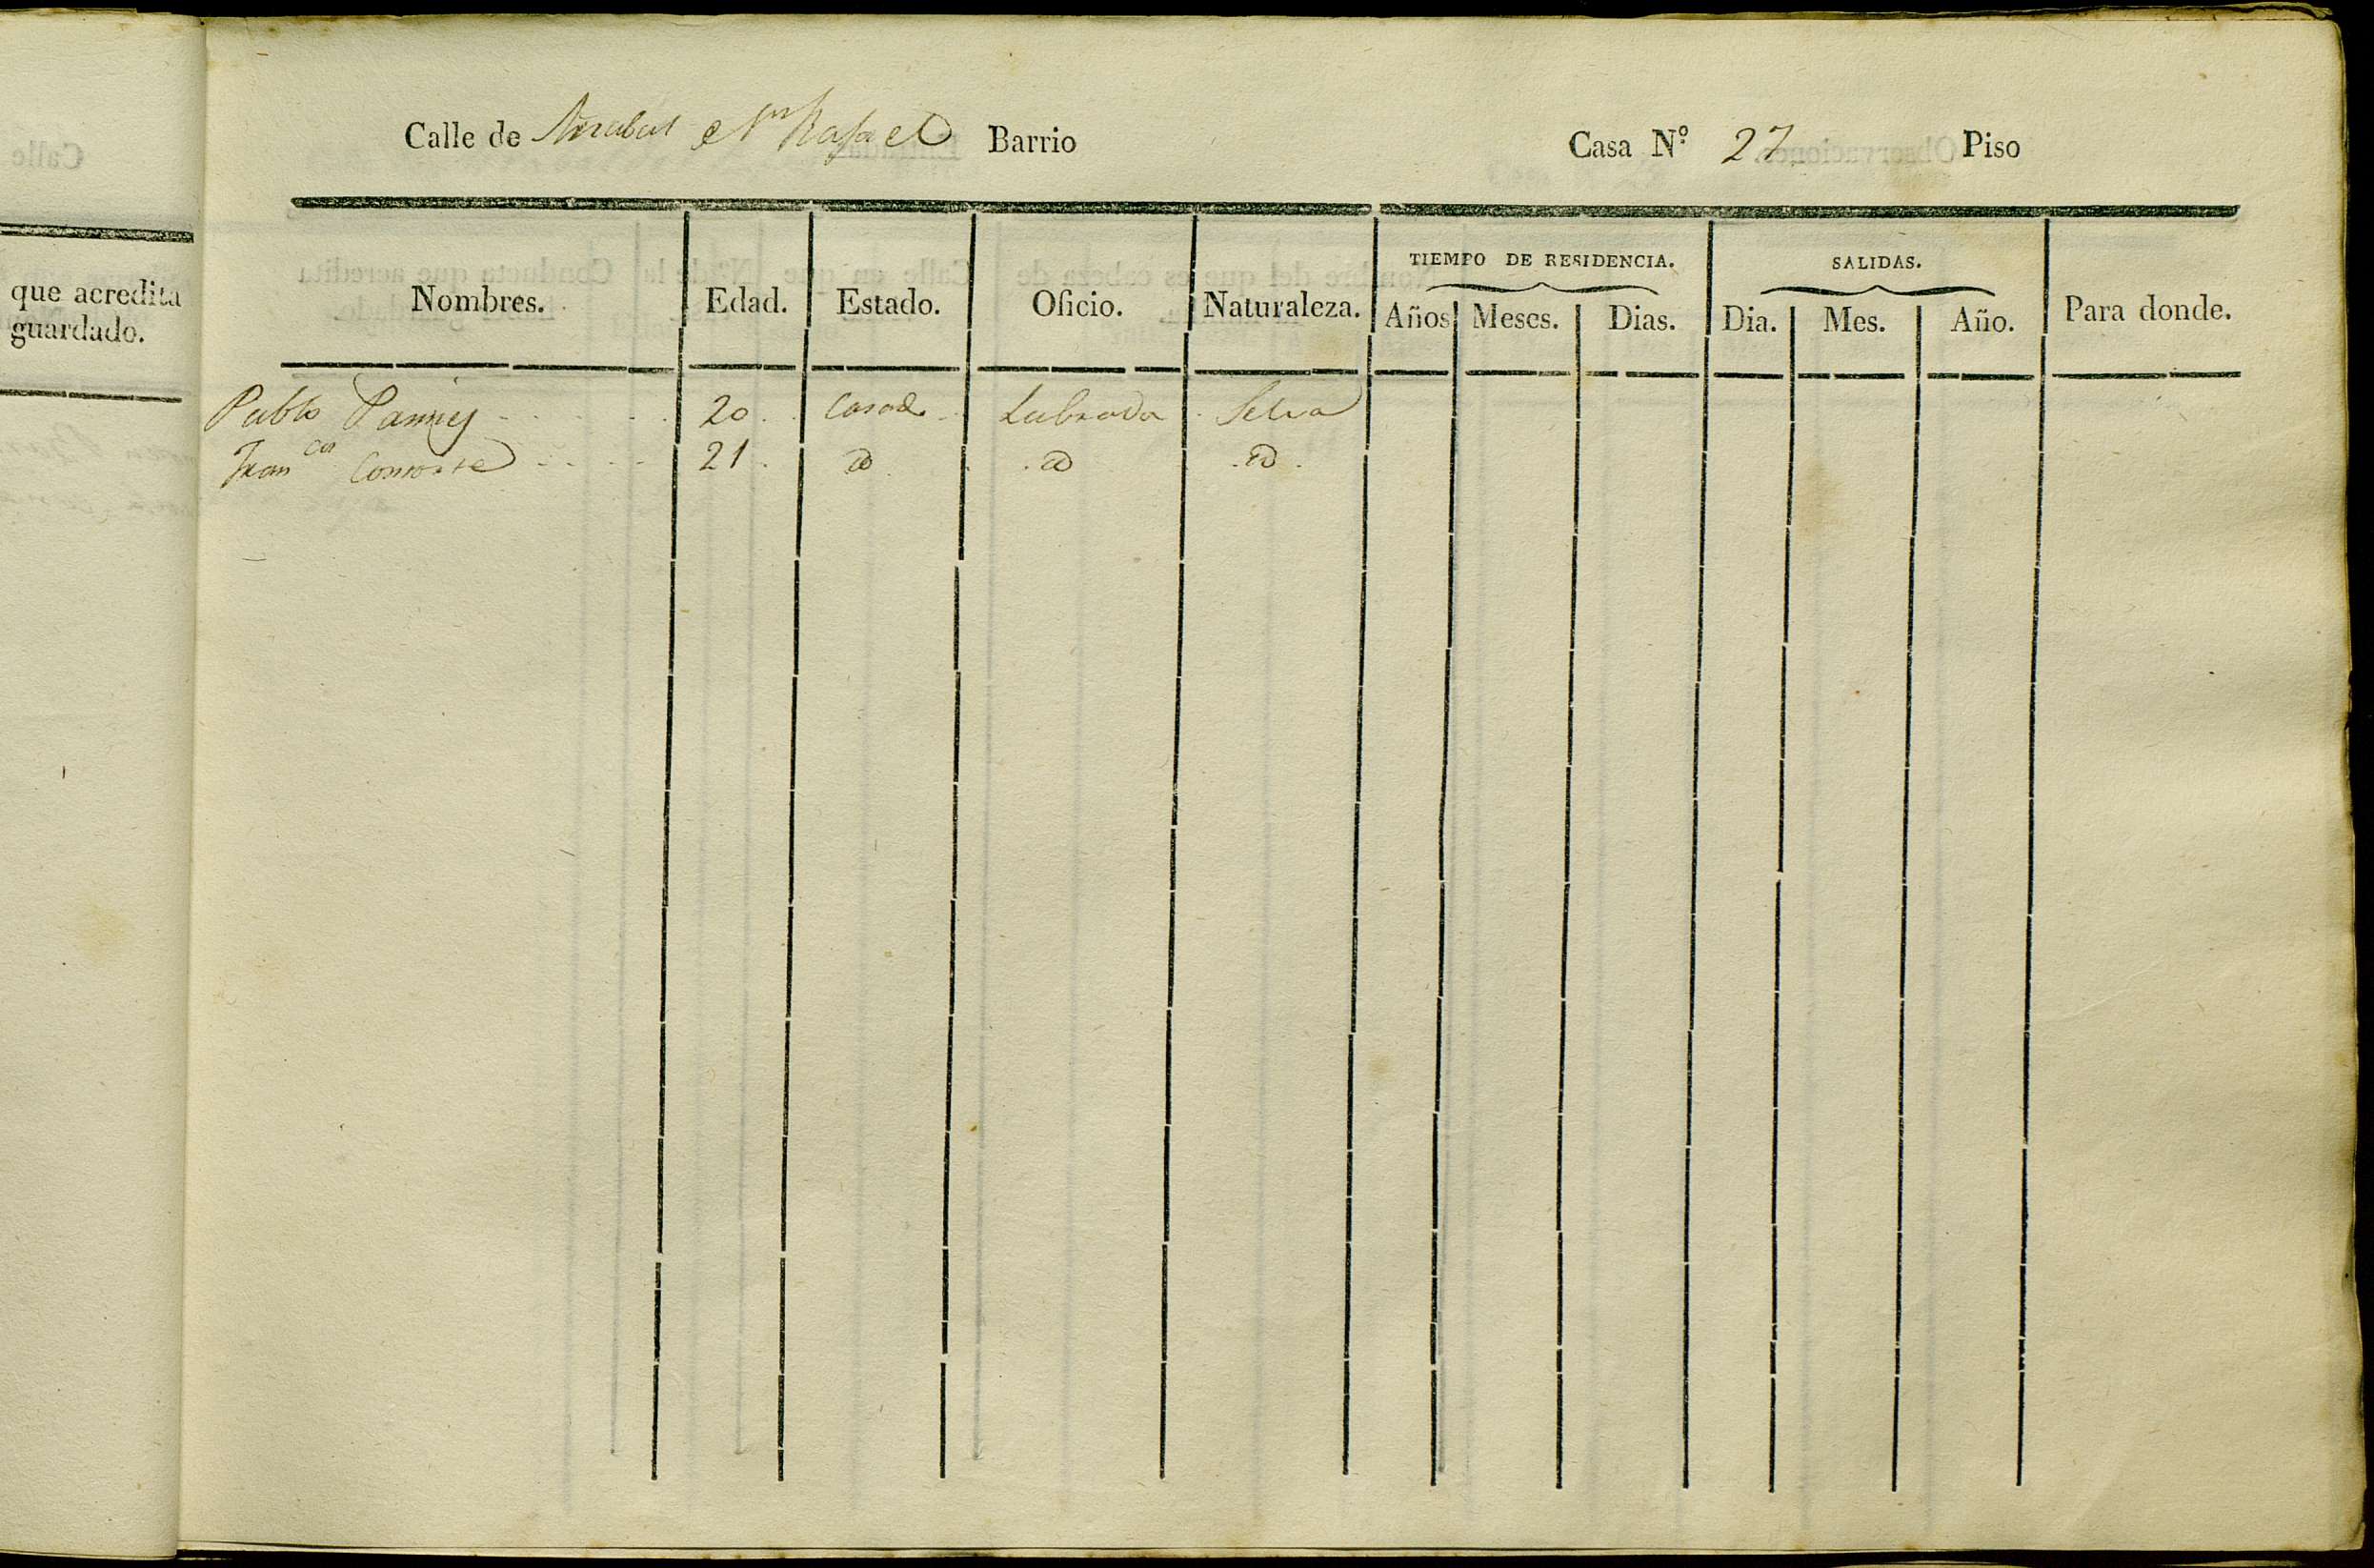 Calle de Arrabal Sn Rafael Barrio Casa N.º 27 Piso
que acredita
guardado.
TIEMPO DE RESIDENCIA. SALIDAS.
Nombres. Edad. Estado. Oficio. Naturaleza. Años Meses. Dias. Dia. Mes. Año. Para donde.
Pablo Pamies 20 Casado Labrador Selva
Francca Consorte 21 id id id